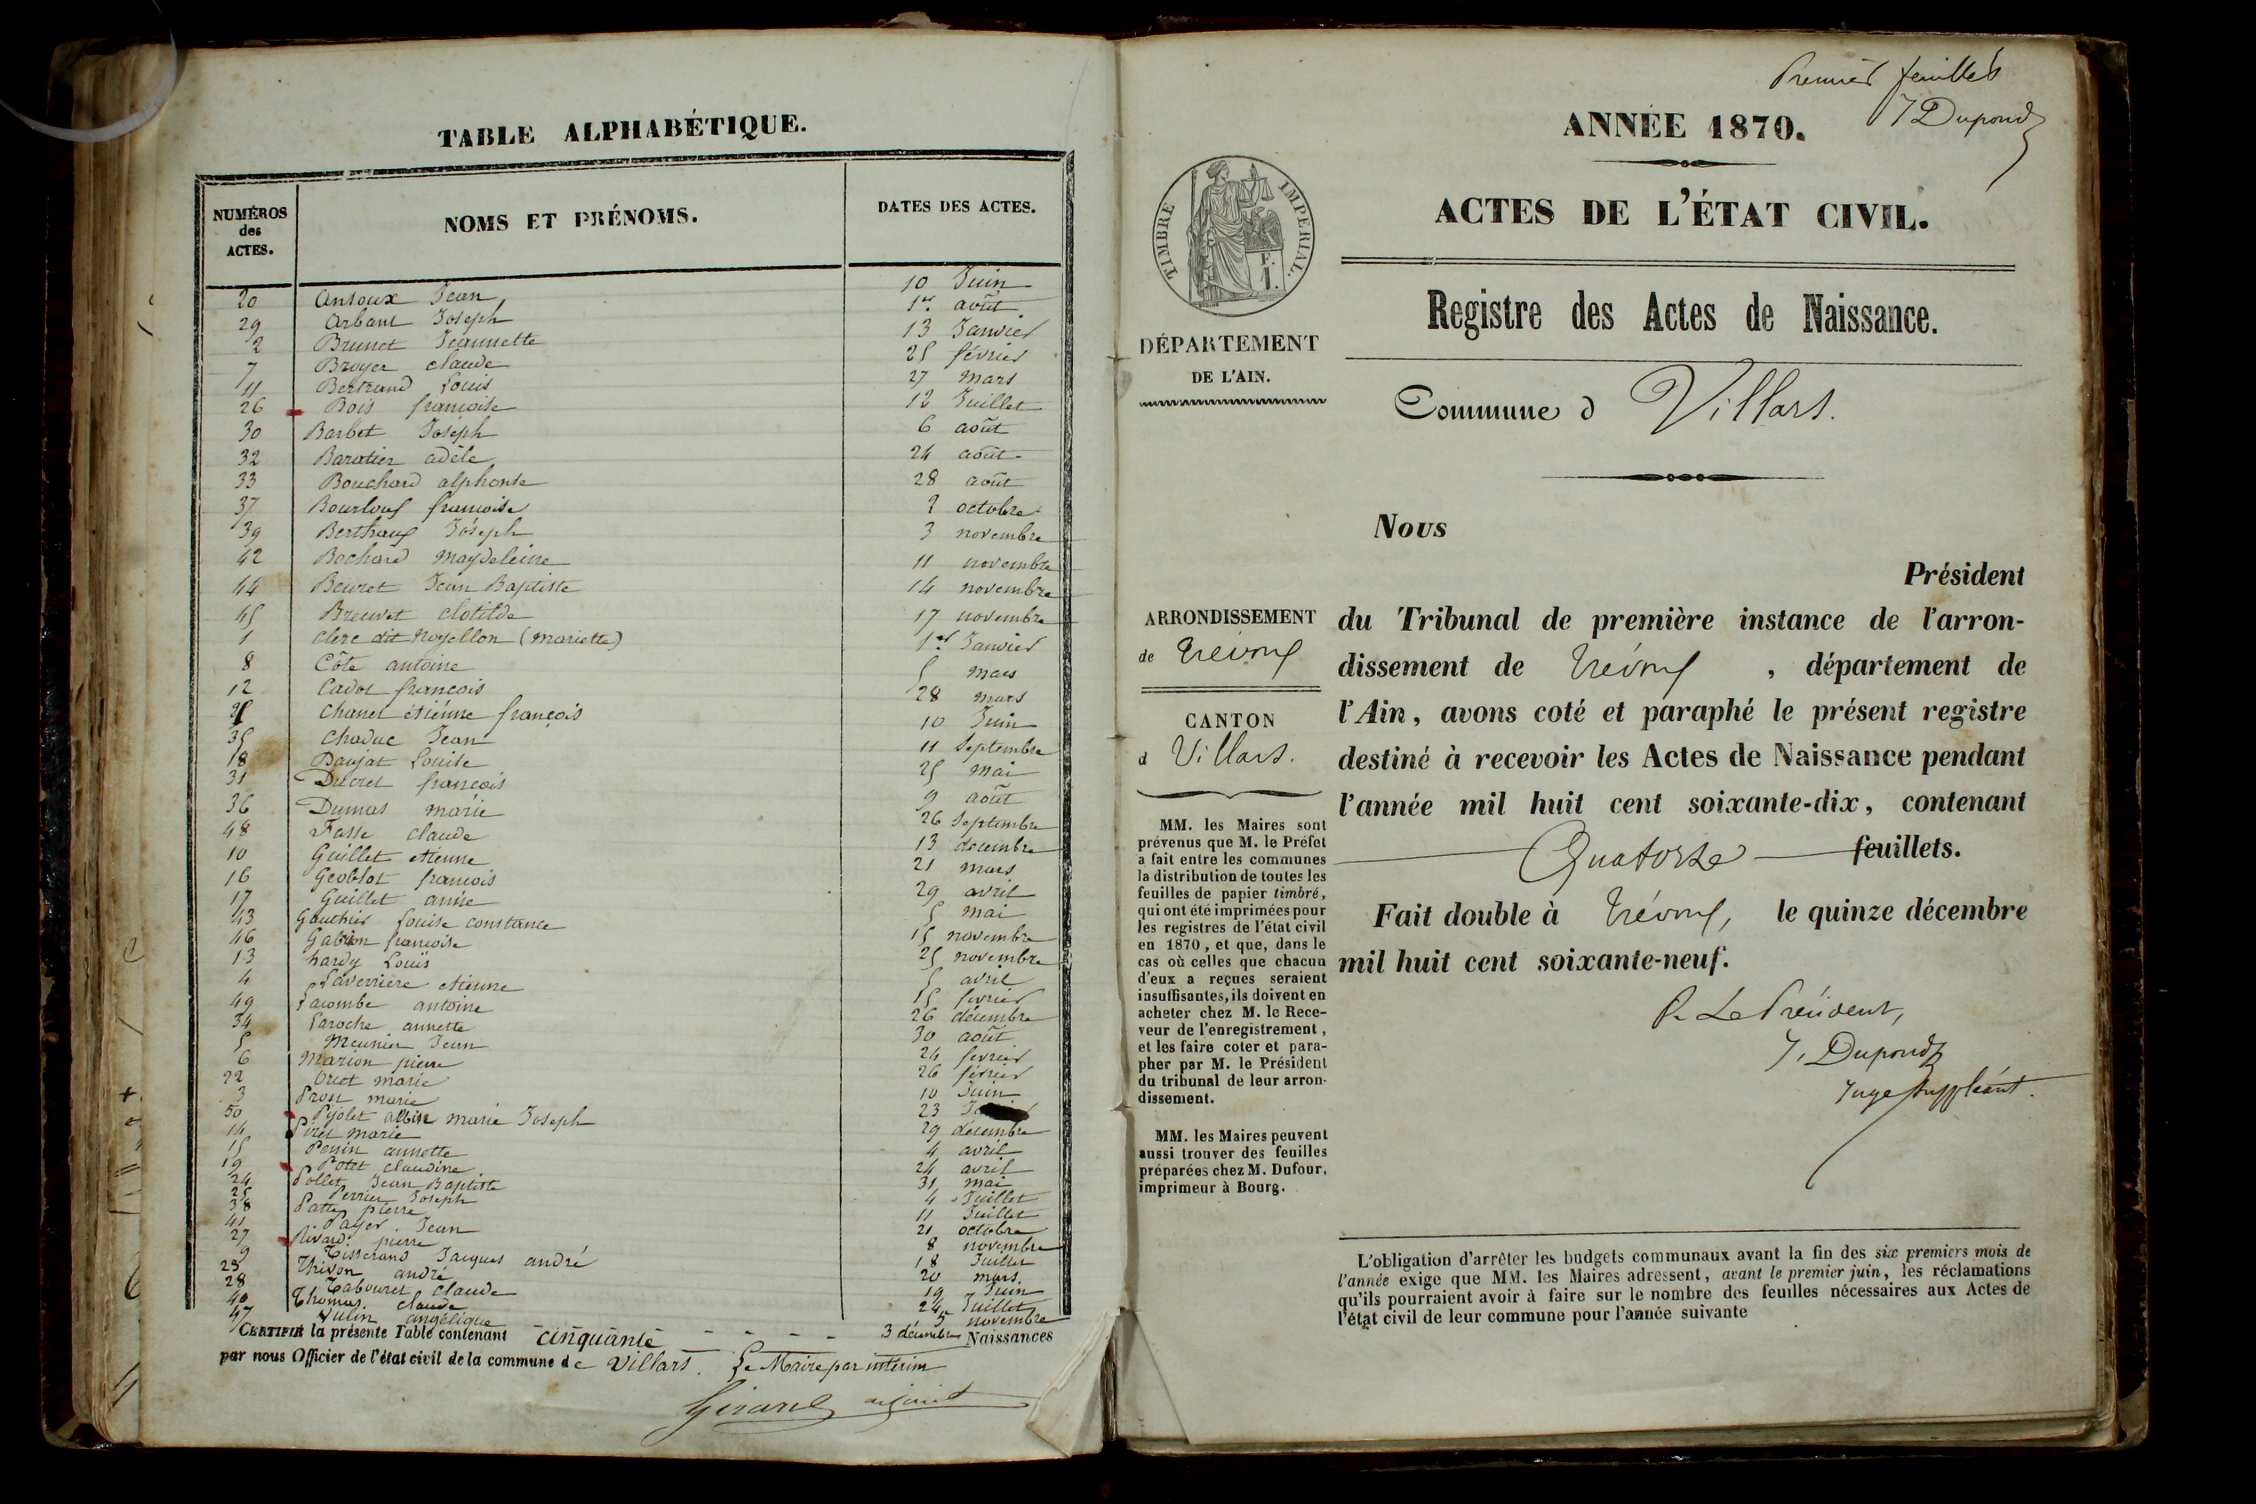 TABLE ALPHABÉTIQUE.
NUMÉROS des ACTES.
NOMS ET PRÉNOMS.
DATES DES ACTES.
20 Ansoux Jean 10 Juin
29 Arbant Joseph 1er août
2 Brunet Jeannette 13 Janvier
7 Broyer claude 25 février
11 Bertrand Louis 27 mars
26 Bois françoise 12 Juillet
30 Barbet Joseph 6 août
32 Baratier adèle 24 août
33 Bouchard alphonse 28 août
37 françoise 2 octobre
39 Joseph 3 novembre
42 Bochard magdeleine 11 novembre
44 Beuret Jean Baptiste 14 novembre
45 Breuvet clotilde 17 novembre
1 clerc dit Noyellon (mariette) 1er Janvier
8 Côte antoine 5 mars
12 Cadot françois 28 mars
21 chanel étiénne françois 10 Juin
35 chaduc Jean 11 Septembre
18 Daujat Louise 25 mai
31 Ducret françois 9 août
36 Dumas marie 26 Septembre
48 Fasse claude 13 décembre
10 Guillet etienne 21 mars
16 françois 29 avril
17 Guillet anne 5 mai
43 Gauthier Louise constance 15 novembre
46 françoise 25 novembre
13 hardy Louis 5 avril
4 Laverrière etienne 15 fevrier
49 Lacombe antoine 26 décembre
34 Laroche annette 30 août
5 Meunier Jean 24 fevrier
6 Marion pierre 26 février
22 Oret marie 10 Juin
3 Pron marie 23
50 Pijolet albin marie Joseph 29 décembre
14 marie 4 avril
15 Penin annette 24 avril
19 Potet claudine 31 mai
24 Pollet Jean Baptiste 4 Juillet
25 Perrier Joseph 11 Juillet
38 Patte pierre 21 octobre
41 Payer Jean 8 novembre
27 Rivard pierre 18 Juillet
9 Tisserand Jacques andré 20 mars
23 Thivon andré 19 Juin
28 Tabouret claude 24 Juillet
40 Thomas claude 5 novembre
47 Vulin angélique 3 décembre
CERTIFIÉ la présente Table contenant cinquante Naissances
par nous Officier de l'état civil de la commune de Villars. Le Maire par intérim
Girard adjoint
Premier feuillet
J Dupond
ANNÉE 1870.
ACTES DE L'ÉTAT CIVIL.
TIMBRE IMPÉRIAL.
Registre des Actes de Naissance.
DÉPARTEMENT
DE L'AIN.
Commune d Villars.
ARRONDISSEMENT
de Trévoux
CANTON
d Villars.
MM. les Maires sont
prévenus que M. le Préfet
a fait entre les communes
la distribution de toutes les
feuilles de papier timbré,
qui ont été imprimées pour
les registres de l'état civil
en 1870, et que, dans le
cas où celles que chacun
d'eux a reçues seraient
insuffisantes, ils doivent en
acheter chez M. le Rece-
veur de l'enregistrement,
et les faire coter et para-
pher par M. le Président
du tribunal de leur arron-
dissement.
MM. les Maires peuvent
aussi trouver des feuilles
préparées chez M. Dufour,
imprimeur à Bourg.
Nous
Président
du Tribunal de première instance de l'arron-
dissement de Trévoux, département de
l'Ain, avons coté et paraphé le présent registre
destiné à recevoir les Actes de Naissance pendant
l'année mil huit cent soixante-dix, contenant
Quatorze feuillets.
Fait double à Trévoux, le quinze décembre
mil huit cent soixante-neuf.
P. Le Président,
J. Dupond
Juge suppléant.
L'obligation d'arrêter les budgets communaux avant la fin des six premiers mois de
l'année exige que MM. les Maires adressent, avant le premier juin, les réclamations
qu'ils pourraient avoir à faire sur le nombre des feuilles nécessaires aux Actes de
l'état civil de leur commune pour l'année suivante